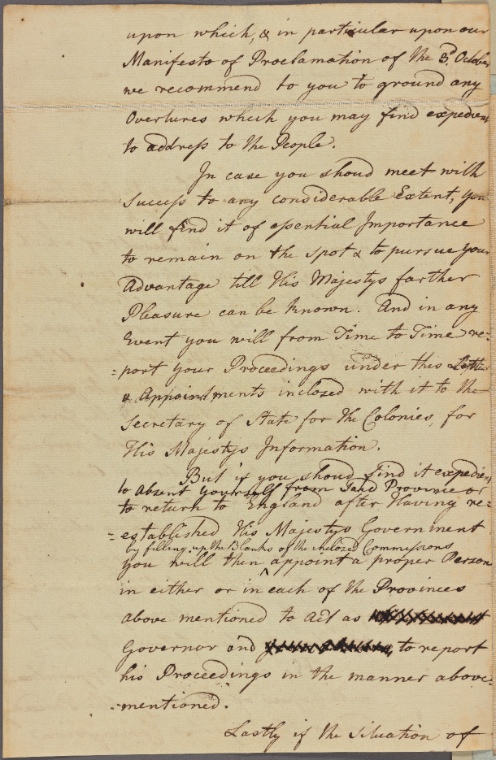 upon which, & in particular upon our
Manifesto & Proclamation of the 3d. October
we recommend to you to ground any
Overtures which you may find expedient
to address to the People.
In case you shoud meet with
Success to any considerable Extent, you
will find it of essential Importance
to remain on the spot & to pursue your
Advantage till His Majestys farther
Pleasure can be known. And in any
Event you will from Time to Time re=
=port your Proceedings under this Letter
& Appointments inclosed with it to the
Secretary of State for the Colonies, for
His Majestys Information.
But if you shoud find it expedient
to absent yourself from said Province or
to return to England after Having re=
=established His Majestys Government
by filling up the Blanks of the inclosed Commissions
you will then ^ appoint a proper Person
in either or in each of the Provinces
above mentioned to act as
Governor and to report
his Proceedings in the manner above
=mentioned.
Lastly if the Situation of